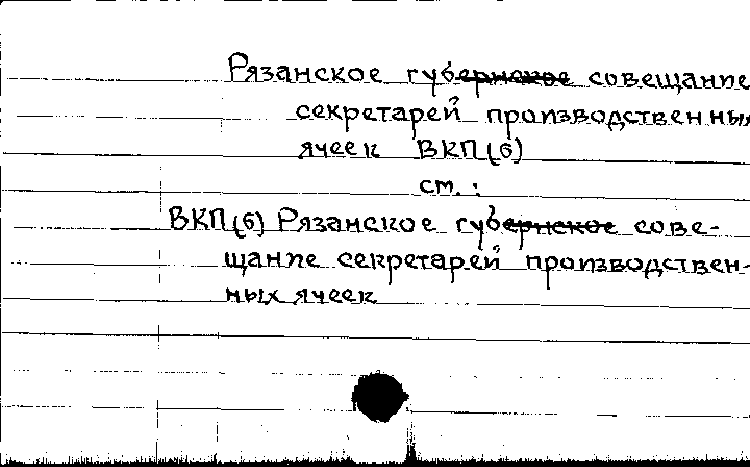 Рязанское губернское совещание
секретарей производственных
ячеек ВКП(б)
см.:
ВКП(б) Рязанское губернское сове-
щание секретарей производствен-
ных ячеек